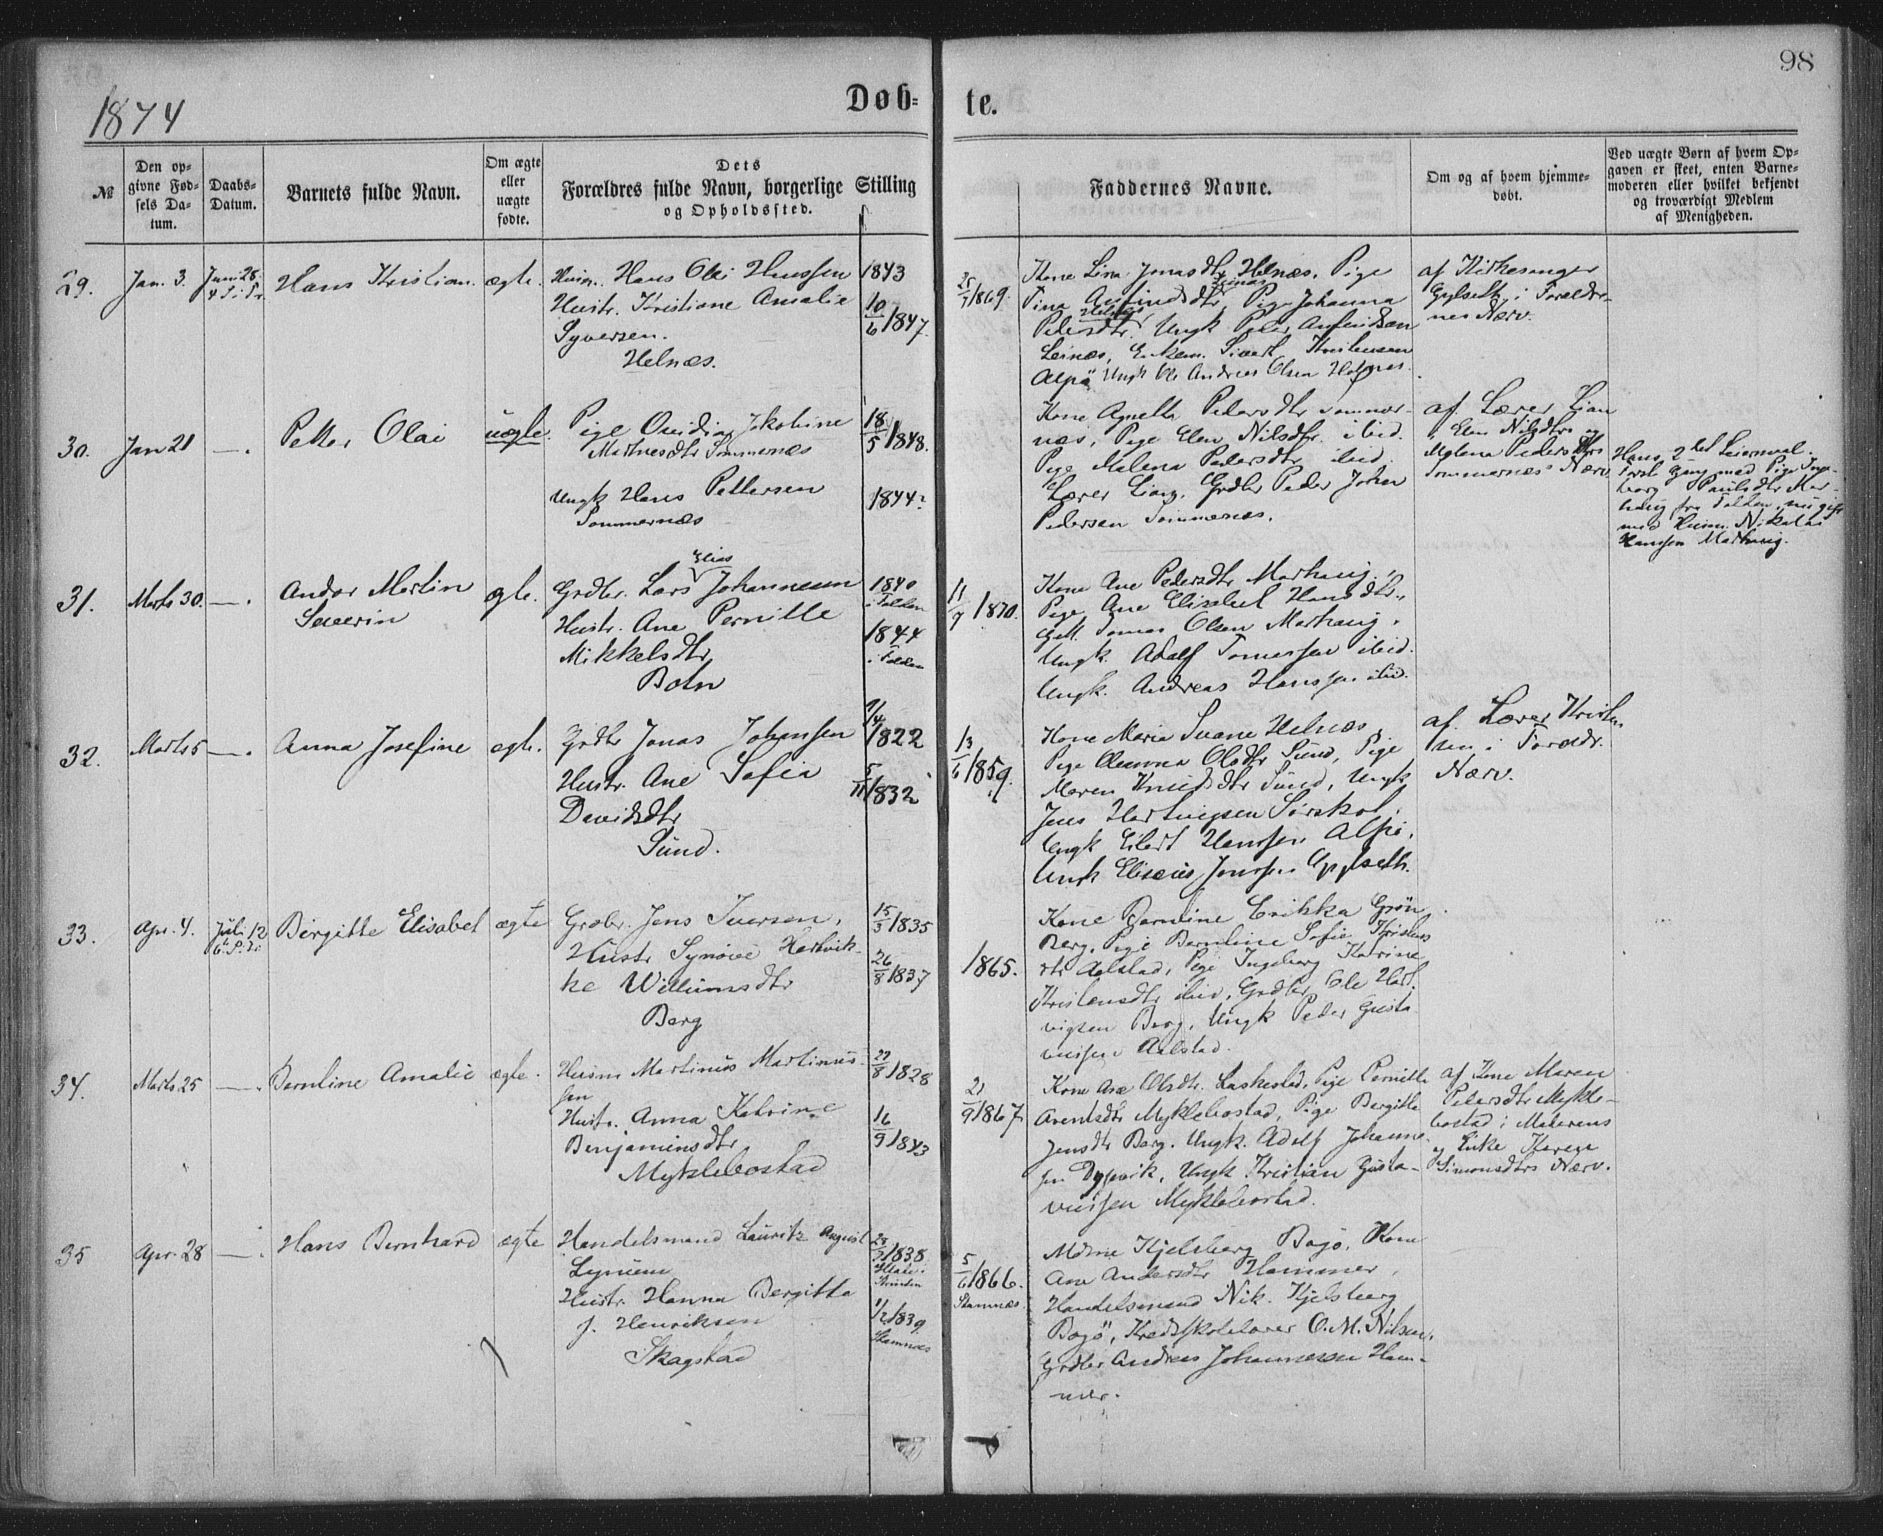 98
1874
Døb-
te.
№
Den op-
givne Fød-
sels Da-
tum.
Daabs-
Datum.
Barnets fulde Navn.
Om ægte
eller
uægte
fødte.
Dets
Forældres fulde Navn, borgerlige Stilling
og Opholdssted.
Faddernes Navne.
Om og af hvem hjemme-
døbt.
Ved uægte Børn af hvem Op-
gaven er skeet, enten Barne-
moderen eller hvilket bekjendt
og troværdigt Medlem
af Menigheden.
29.
Jan. 3.
Juni 28
Hans Kristian.
ægte.
Hans Olai Hanssen
Hustr. Kristiane Amalie
Syversen.
Helnæs.
1843
10/6 1847.
25/7 1869.
Kone Lina Jonasdtr Helnæs, Pige
Leinæs
Tina Anfindsdtr, Pige Johanna
Helnæs
Pedersdtr. Ungk Peder Anfindsen
Leinæs, Enkem. Sivert Kristensen
Alpø Ungk Ole Andreas Olsen
af Kirkesanger
Gylseth i Forældre-
nes Nærv.
30.
Jan 21
—.
Petter Olai
uægte.
Pige Ovidia Jakobine
Martnesdtr Sommernæs
Ungk Hans Pettersen
Sommernæs
18/5 1848.
1844?
Kone Agnetha Pedersdtr Sommer-
næs, Pige Elen Nilsdtr ibid.
Pige Malena Pedersdtr ibid.
Lærer Liang, Grdbr Peder Johan
Pedersen Sommernæs.
af Lærer Lian
i Elen Nilsdtrs og
Malena Pedersdtrs
Sommernæs' Nærv.
Hans 2det Leiermaal.
Første Gang med Pige Inge-
borg Paulsdtr Mør-
haug fra Folden, nu gift
med Husm. Nikolai
Hanssen Mørhaug.
31.
Marts 30.
—.
Andor Martin
Severin
ægte.
Elias
Grdbr. Lars Johannesen
Hustr. Ane Pernille
Mikkelsdtr
Botn
1840
i Folden
1844
i Folden
11/9 1870.
Kone Ane Pedersdtr Mørhaug,
Pige Ane Elisabet Hansdtr.,
Tomas Olsen Mørhaug,
Ungk. Adolf Tomassen ibid.
Ungk. Andreas Hanssen ibid.
32.
Marts 5
—.
Anna Josefine
ægte.
Grdbr Jonas Johansen
Hustr. Ane Sofia
Davidsdtr
Sund.
7/4 1822
5/11 1832
13/6 1859.
Kone Maria Svane Helnæs
Pige Olsdtr Sund, Pige
Maren Knudsdtr Sund, Ungk
Jens Hartvigsen Sørskot,
Ungk Eilert Hanssen Alpø,
Ungk Elisæus Jonssen Gylseth.
af Lærer Kristen-
sen i Forældr.
Nærv.
33.
Apr. 4.
Juli 12
Birgitte Elisabet
ægte
Grdbr. Jens Iversen,
Hustr Synøve Hartvik-
ke Willumsdtr
Berg
15/3 1835
26/8 1837
1865.
Kone Bernline Erikka Grøn
Berg, Pige Bernline Sofie Kristens
dtr Aalstad, Pige Ingeborg Katrine
Kristensdtr ibid, Grdbr. Ole Hart-
vigsen Berg, Ungk Peder Gusta-
vussen Aalstad.
34.
Marts. 25
—.
Bernline Amalie
ægte.
Husm Martinus Martinus-
sen
Hustr. Anna Katrine
Benjaminsdtr
Myklebostad
27/8 1828
16/9 1843
21/9 1867
Kone Ane Olsdtr. Laskestad, Pige Pernille
Arentsdtr Myklebostad, Pige Bergitte
Jensdtr Berg, Ungk. Adolf Johannes-
sen Dypvik, Ungk. Kristian Gusta-
vussen Myklebostad.
af Kone Maren
Pedersdtr Mykle-
bostad i Moderens
og Enke Karen
Simonsdtrs Nærv.
35
Apr. 28
—.
Hans Bernhard
ægte
Handelsmand Lauritz August
Hustr. Hanna Bergitte
f. Henriksen
Skagstad
1838
1/2 1839
Stamnæs
5/6 1866.
Stamnæs.
Mdme Kjelsberg Bogø, Kone
Ane Andersdtr Hammer,
Handelsmand Nik. Kjelsberg
Bogø, Kredsskolelærer O. M. Nilsen,
Grdbr Andreas Johannessen Ham-
mer.